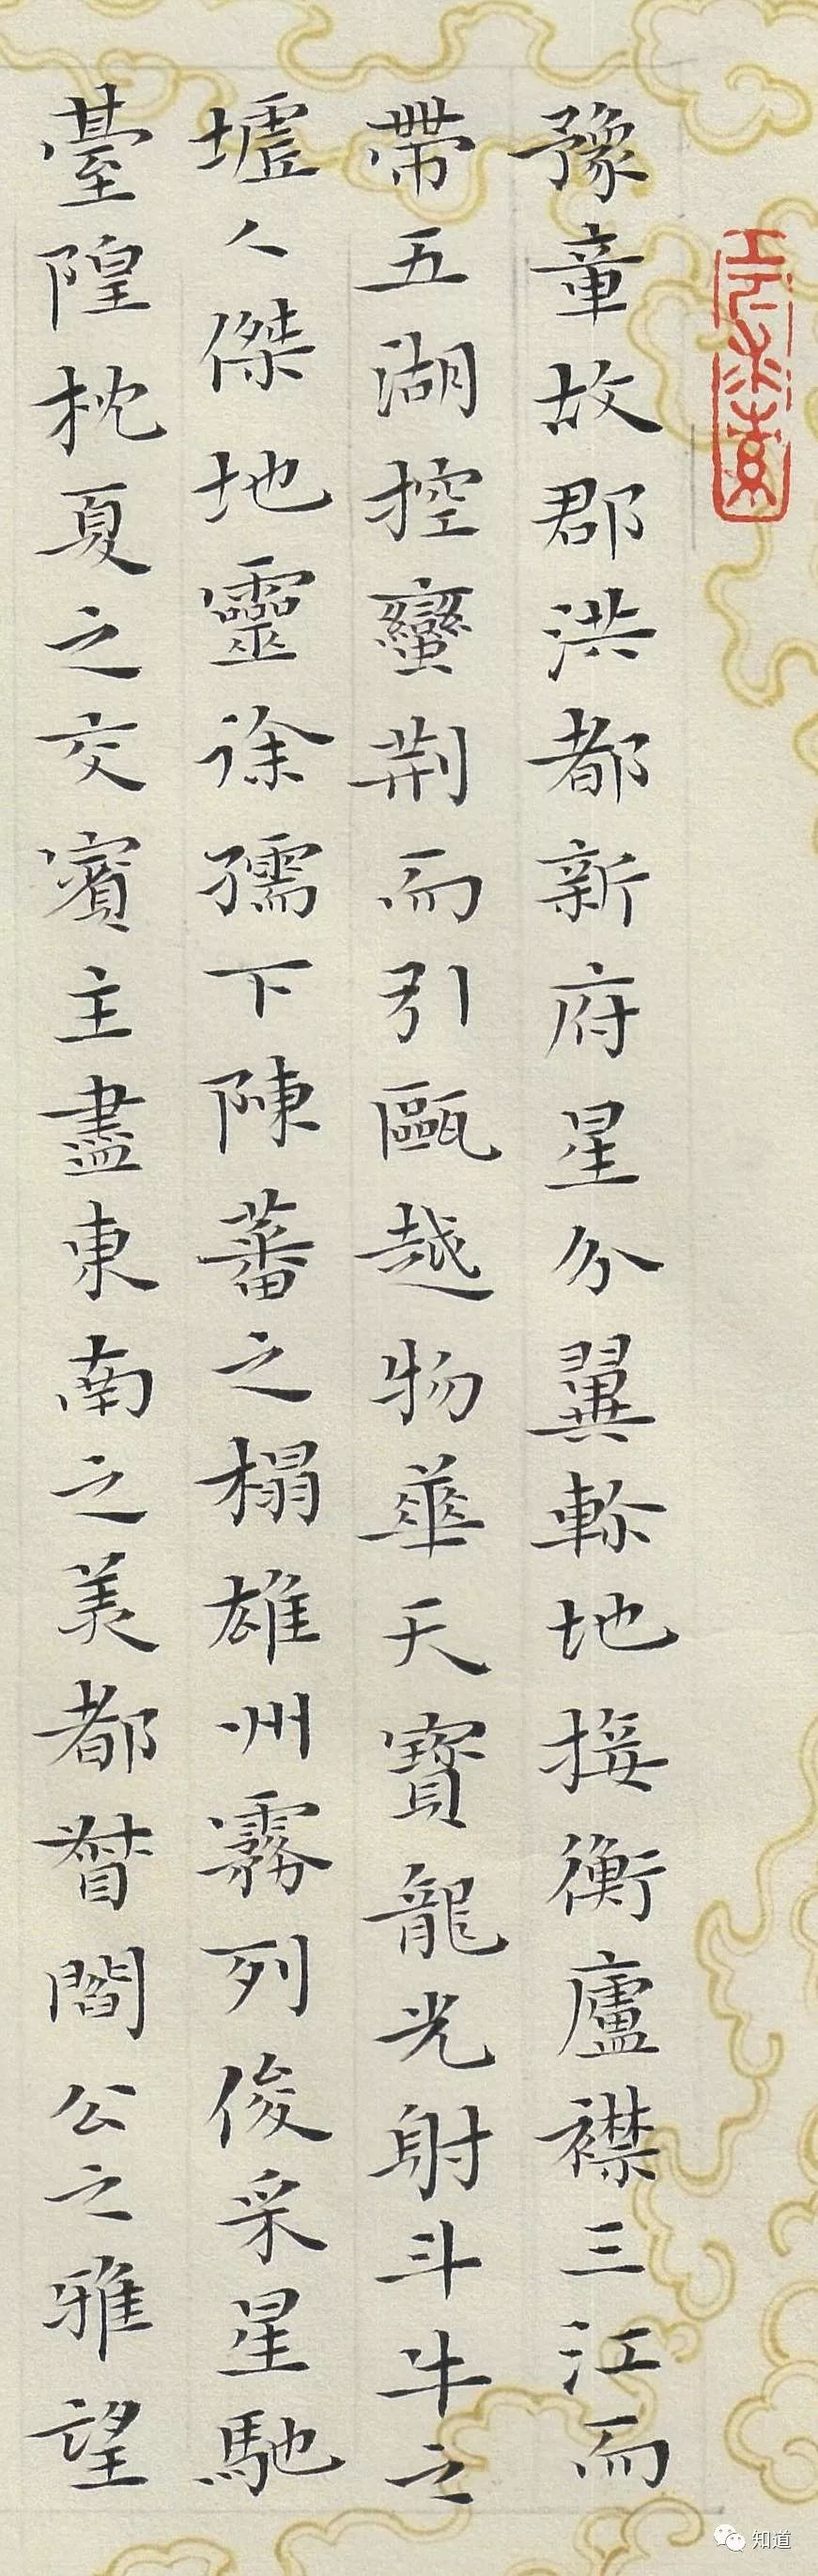 豫章故郡洪都新府星分翼軫地接衡廬襟三江而
帶五湖控蠻荆而引甌越物華天寶龍光射斗牛之
墟人傑地靈徐孺下陳蕃之榻雄州霧列俊采星馳
臺隍枕夏之交賓主盡東南之美都督閻公之雅望
知道